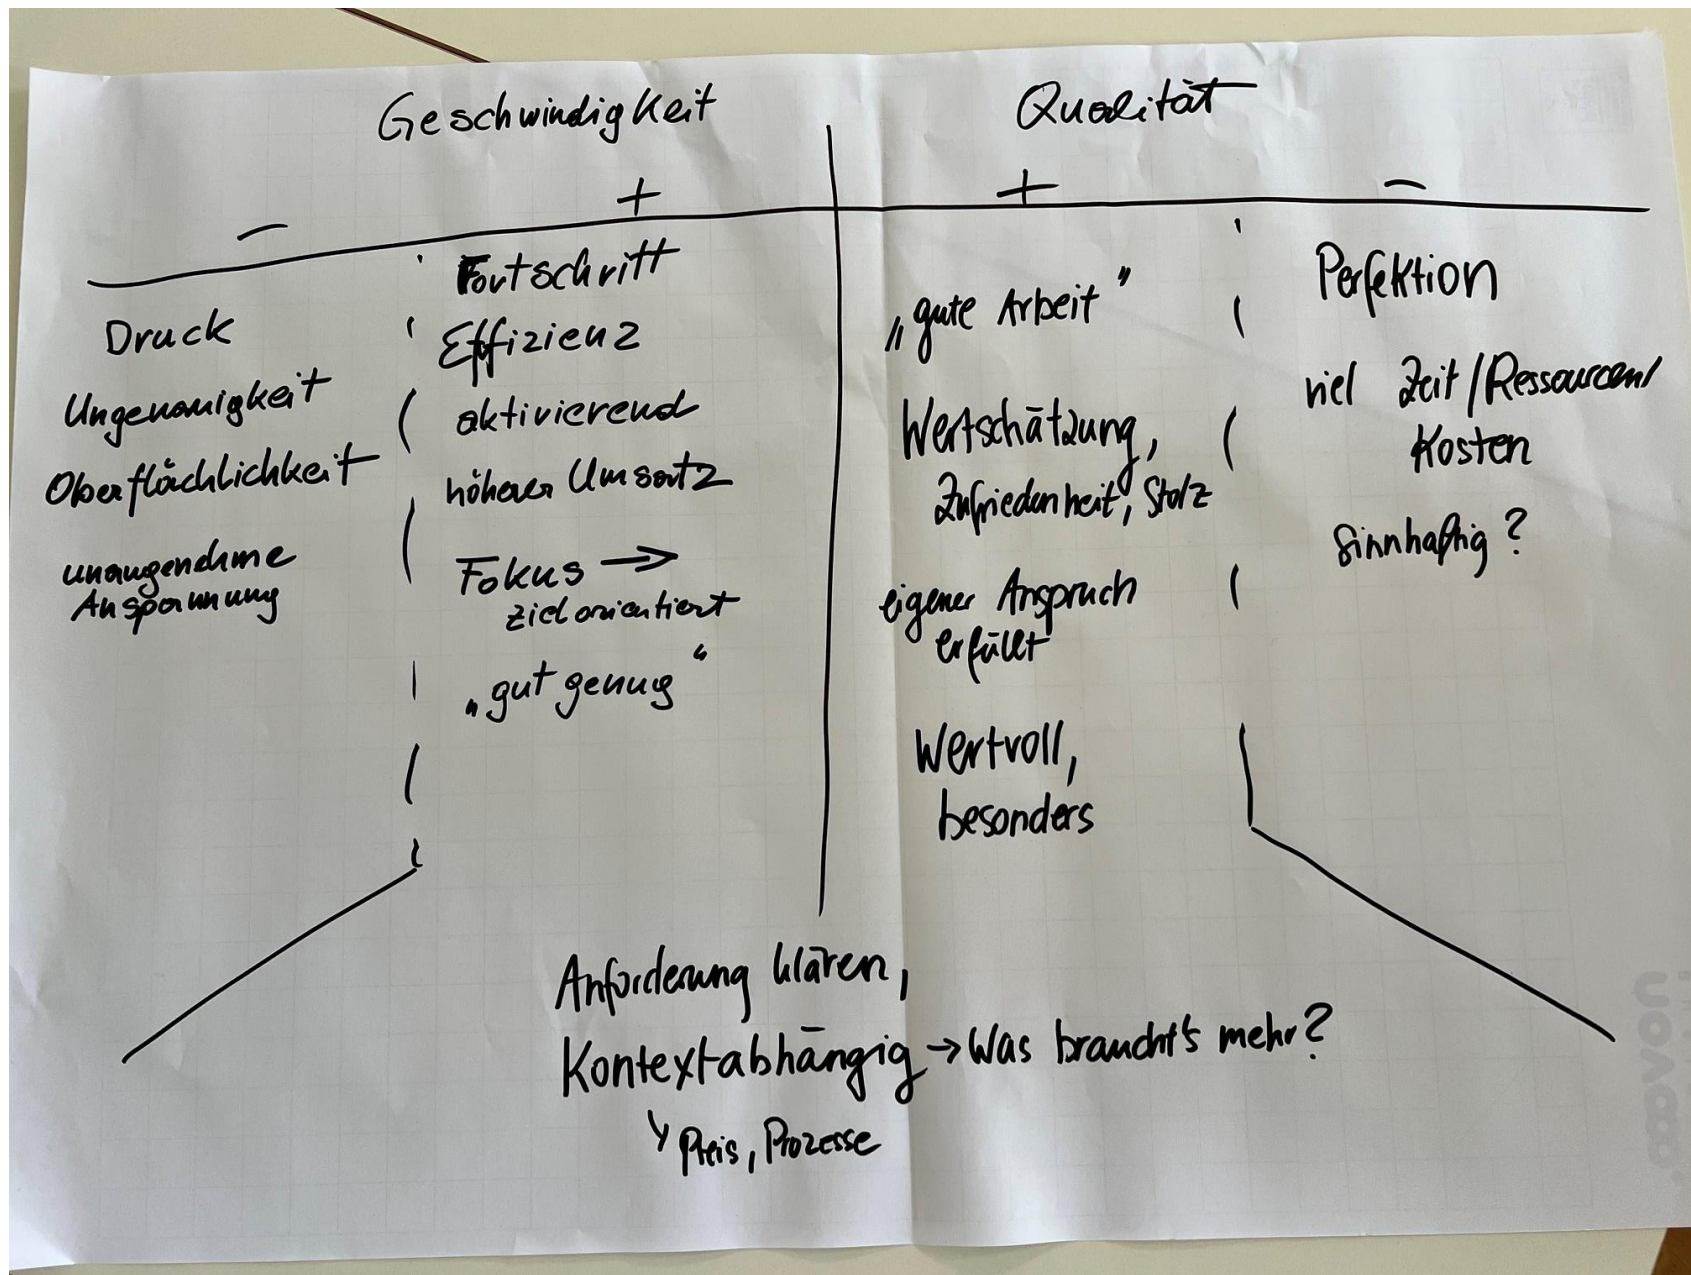 Geschwindigkeit
− +
Druck
Ungenauigkeit
Oberflächlichkeit
unangenehme
Anspannung
Fortschritt
Effizienz
aktivierend
höherer Umsatz
Fokus →
zielorientiert
„gut genug“
Qualität
+ −
„gute Arbeit”
Wertschätzung,
Zufriedenheit, Stolz
eigener Anspruch
erfüllt
Wertvoll,
besonders
Perfektion
viel Zeit/Ressourcen/
Kosten
Sinnhaftig?
Anforderung klären,
Kontextabhängig → Was braucht's mehr?
↳ Preis, Prozesse
novooo.